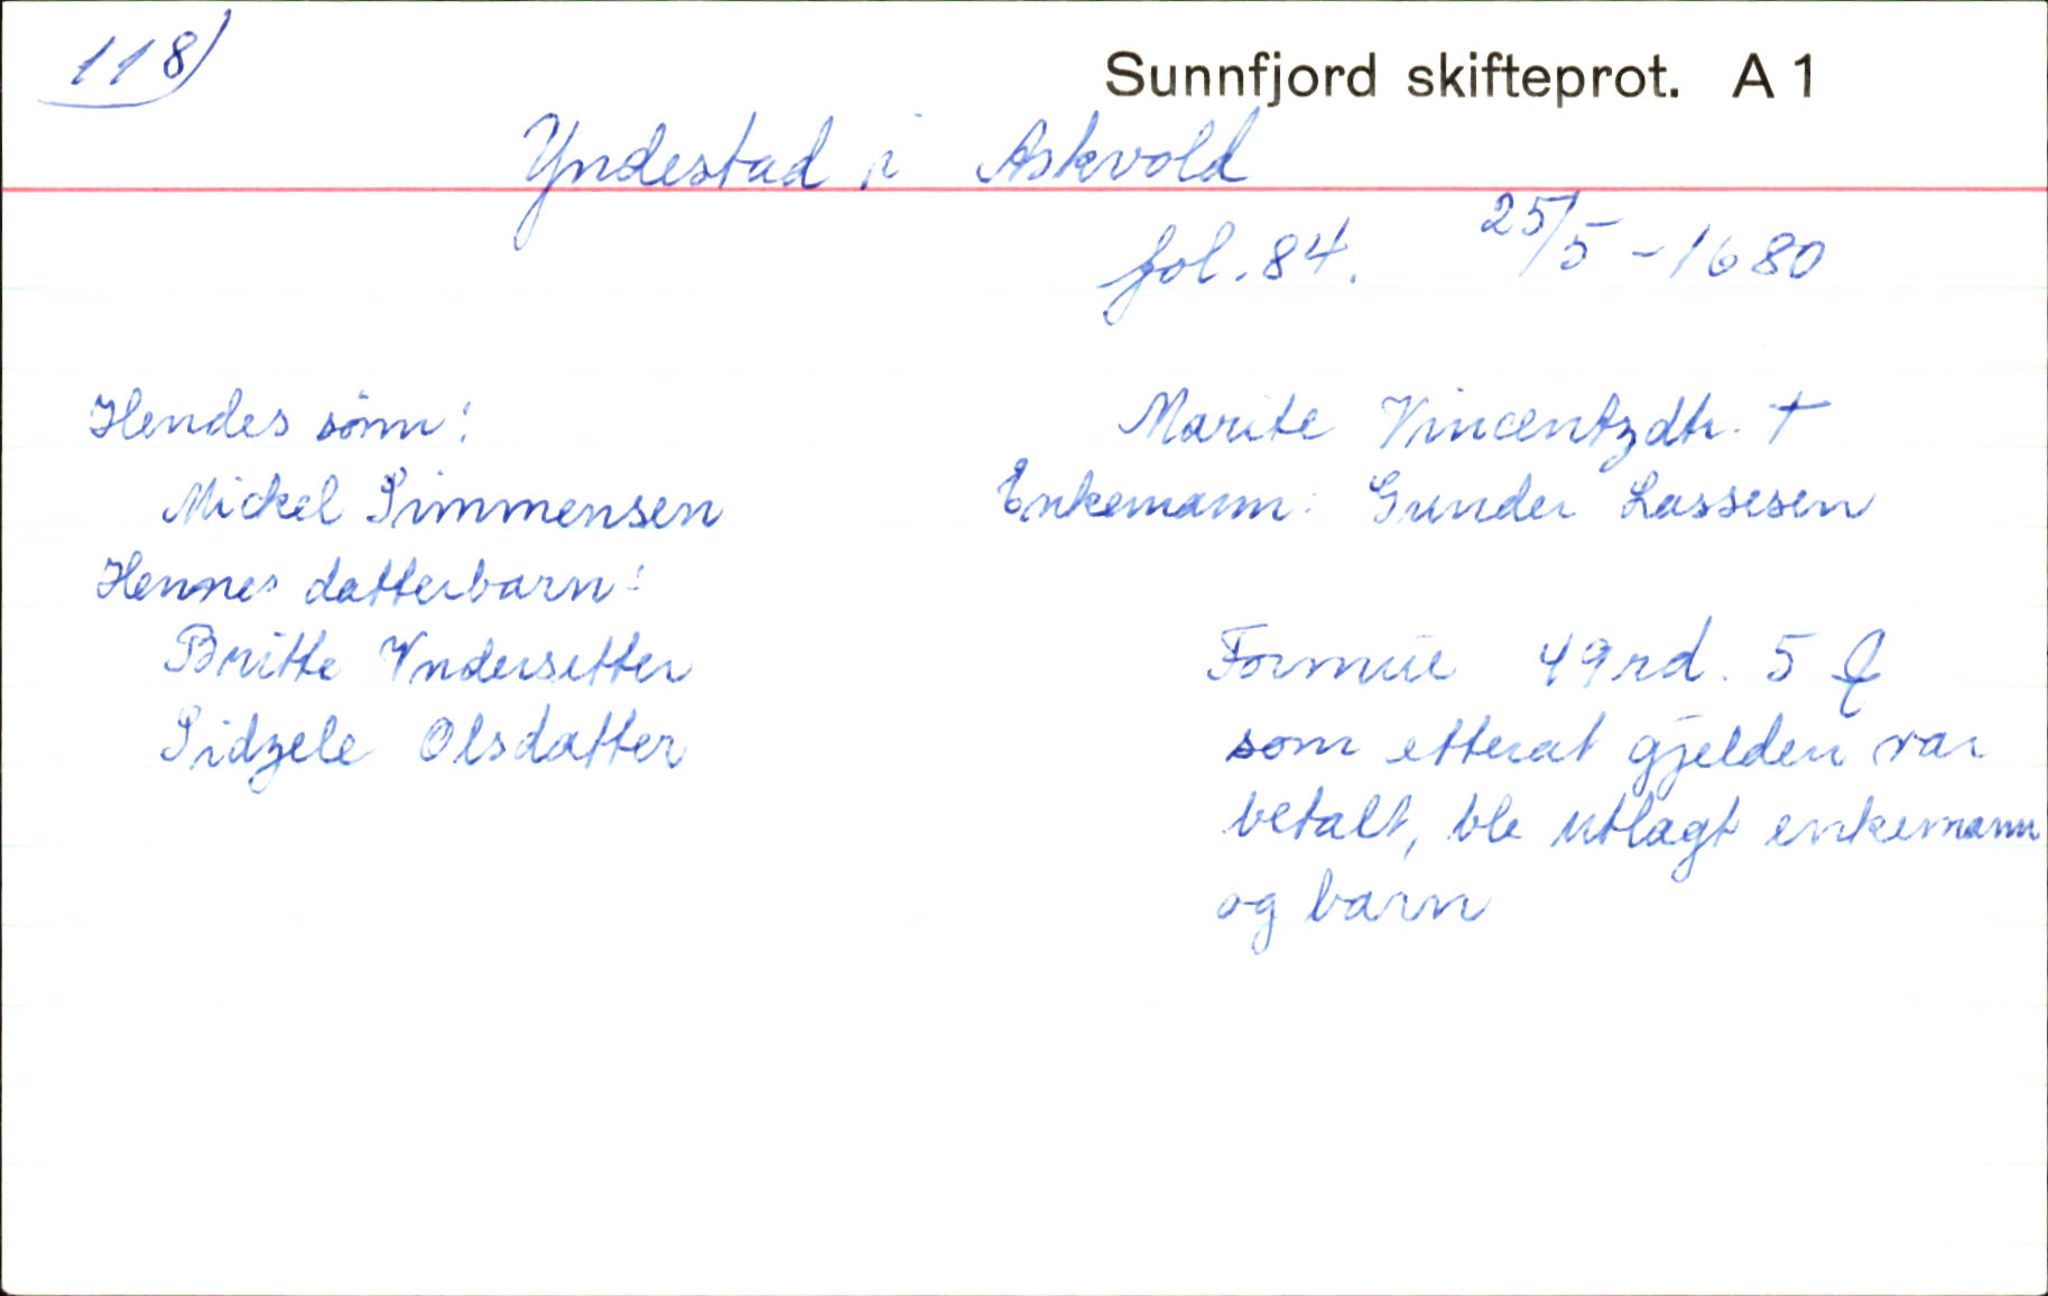 118)
Sunnfjord skifteprot. A 1
Yndestad i Askvold
fol. 84. 25/5 - 1680
Hendes sönn:
Mickel Simmensen
Hennes datterbarn:
Britte Yndersetter
Sidzele Olsdatter
Marite Vincentzdtr. †
Enkemann: Gunder Lassesen
Formue 49 rd. 5
som etterat gjelden var
betalt, ble utlagt enkemann
og barn